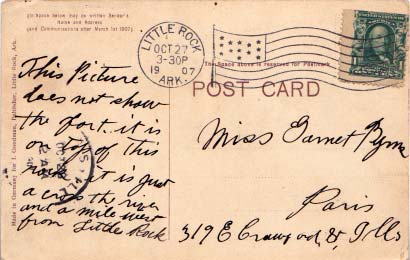 (In Space below may be written Sender's
Name and Address
(and Communications after March 1st 1907).
LITTLE ROCK
OCT 27
3-30P
19 07
ARK.
The Space above is reserved for Postmark.
POST CARD
This Picture
does not show
the fort. it is
on top of this
rock it is just
across the river
and a mile west
from Little Rock
Miss Garnet
Paris
319 E Crawford St, Ills
Made in Germany for J. Goodman, Publisher, Little Rock, Ark.